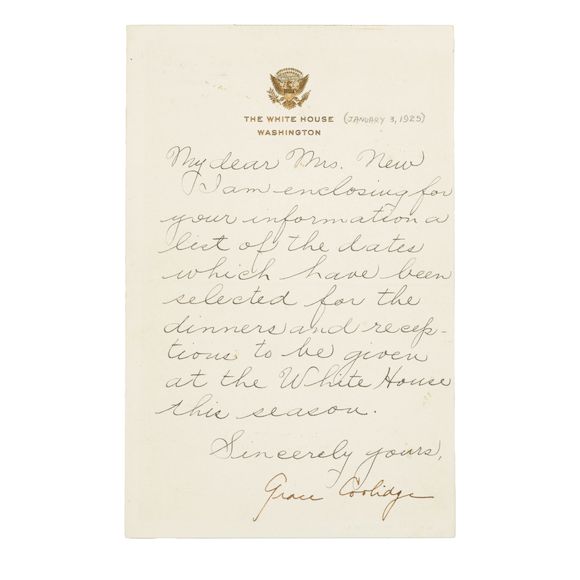 THE WHITE HOUSE (JANUARY 3, 1925)
WASHINGTON
My dear Mrs. New
I am enclosing for
your information a
list of the dates
which have been
selected for the
dinners and recep-
tions to be given
at the White House
this season.
Sincerely yours,
Grace Coolidge